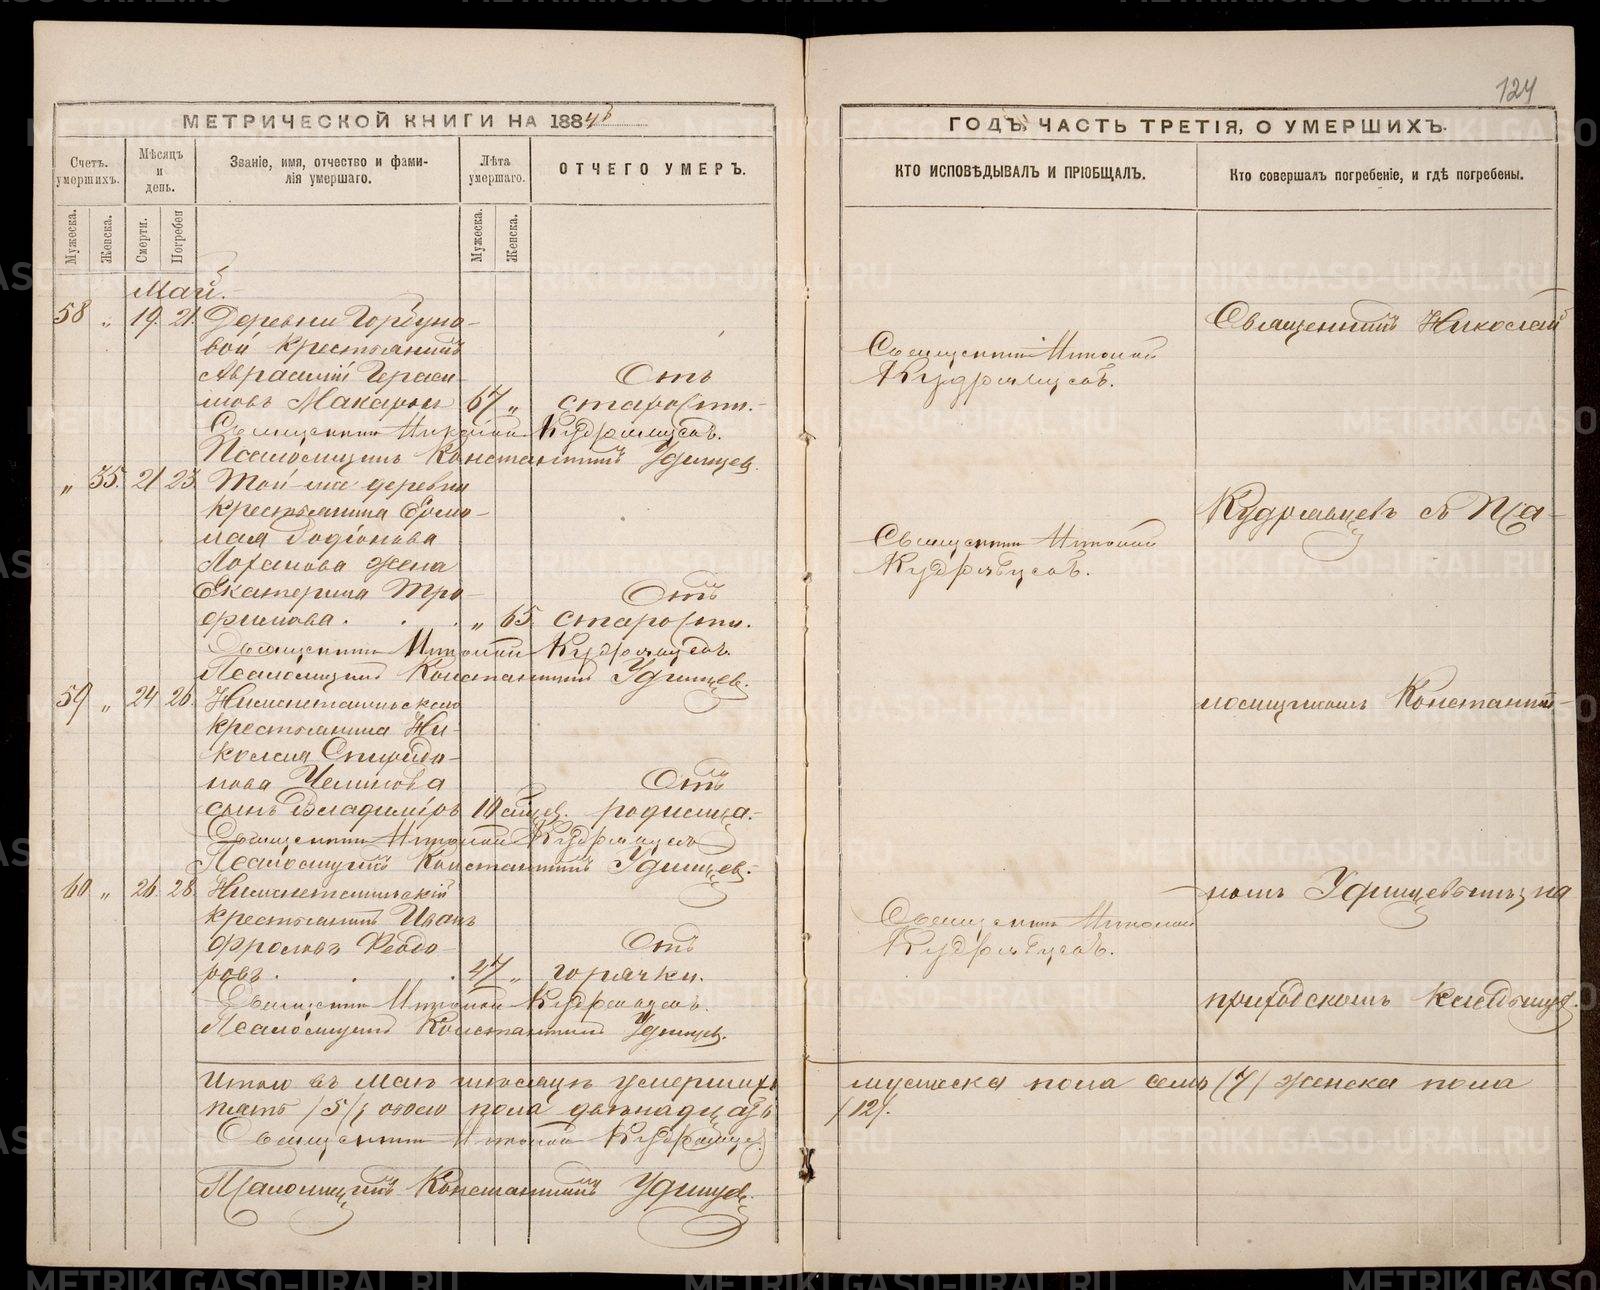 124
МЕТРИЧЕСКОЙ КНИГИ НА 1884й
Счетъ умершихъ.
Мѣсяцъ и день.
Званіе, имя, отчество и фами-
лія умершаго.
Лѣта умершаго.
ОТЧЕГО УМЕРЪ.
Мужеска.
Женска.
Смерти.
Погребен
Мужеска.
Женска.
Май.
58 „ 19. 21. Деревни Горбуно-
вой крестьянинъ
Гераси-
мовъ 67 „
Отъ
старости.
Священникъ Николай Кудрявцевъ.
Псаломщикъ Константинъ Удинцев.
„ 35. 21 23. Той же деревни
крестьянина Ермо-
лая Родіонова
Лоханова жена
Екатерина Тро-
фимова. „ 65.
Отъ
старости.
Священникъ Николай Кудрявцевъ.
Псаломщикъ Константинъ Удинцев.
59 „ 24 26.
крестьянина Ни-
колая Спиридо-
нова
сынъ Владиміръ 10 родимца.
Отъ
Священникъ Николай Кудрявцевъ
Псаломщикъ Константинъ Удинцев.
60 „ 26. 28.
крестьянинъ Иванъ
Фроловъ Ѳедо-
ровъ. 47 „
Отъ
горячки.
Священникъ Николай Кудрявцевъ.
Псаломщикъ Константинъ Удинцев.
Итого въ Маѣ мѣсяцѣ умершихъ
пять /5/, обоего пола двѣнадцать
Священникъ Николай Кудрявцев.
Псаломщикъ Константинъ Удинцев.
ГОДЪ, ЧАСТЬ ТРЕТІЯ, О УМЕРШИХЪ.
КТО ИСПОВѢДЫВАЛЪ И ПРІОБЩАЛЪ.
Кто совершалъ погребеніе, и гдѣ погребены.
Священникъ Николай
Священникъ Николай
Кудрявцевъ.
Кудрявцевъ съ Пса-
Священникъ Николай
Кудрявцевъ.
ломщикомъ Константи-
номъ Удинцевымъ на
Священникъ Николай
Кудрявцевъ.
приходскомъ кладбищѣ.
мужеска пола семь /7/ женска пола
/12/.
METRIKI.GASO-URAL.RU